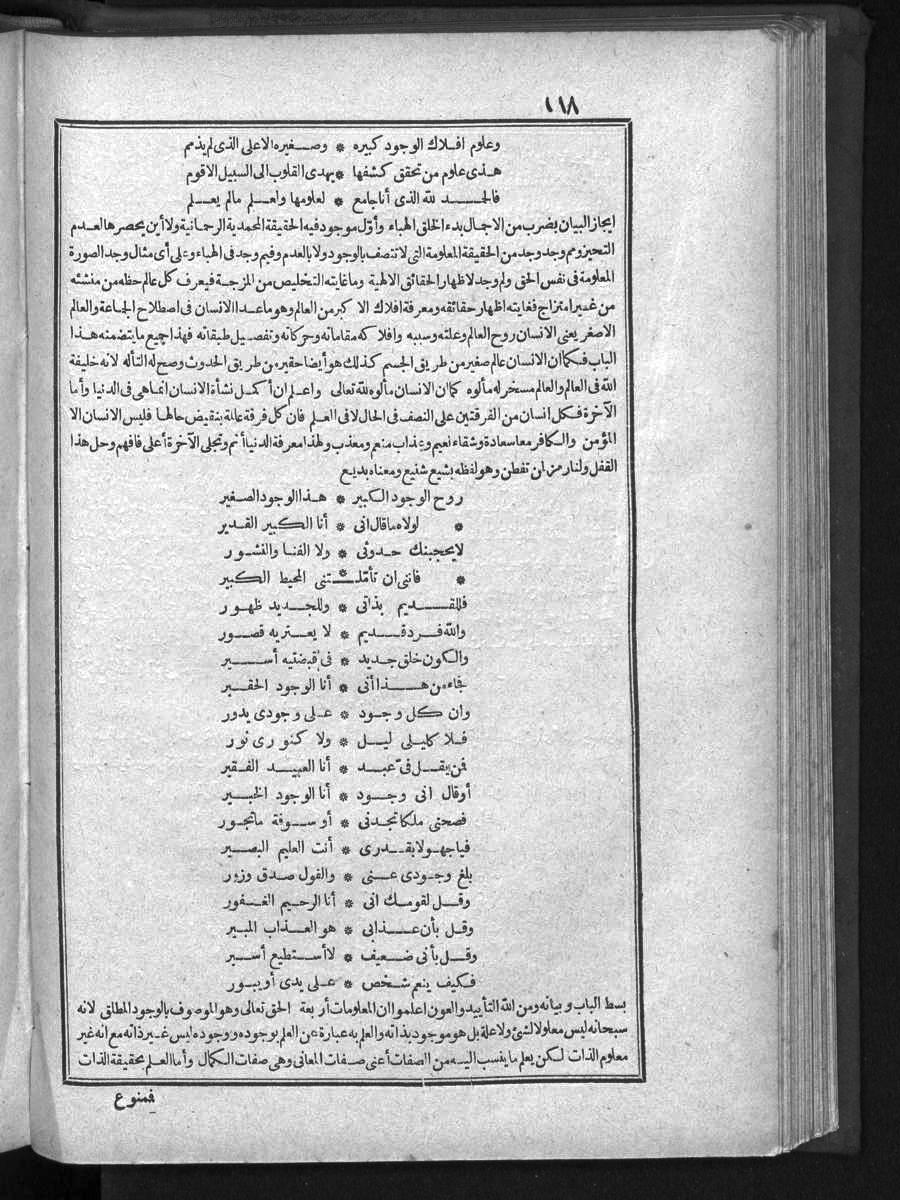 ١١٨
وعلوم افلاك الوجود كبيره * وصغيره الاعلى الذى لم يذمم
هذى علوم من تحقق كشفها * يهدى القلوب الى السبيل الاقوم
فالحمد لله الذى أنا جامع * لعلومها ولعلم مالم يعلم
ايجاز البيان بضرب من الاجمال بدء الخلق الهباء وأوّل موجود فيه الحقيقة المحمدية الرحمانية ولا أين يحصرها لعدم
التحيز ومم وجد وجد من الحقيقة المعلومة التى لا تتصف بالوجود ولا بالعدم وفيم وجد فى الهباء وعلى أى مثال وجد الصورة
المعلومة فى نفس الحق ولم وجد لاظهار الحقائق الالهية وما غايته التخليص من المزجة فيعرف كل عالم حظه من منشئه
من غير امتزاج فغايته اظهار حقائقه ومعرفة افلاك الاكبر من العالم وهو ما عدا الانسان فى اصطلاح الجماعة والعالم
الاصغر يعنى الانسان روح العالم وعلته وسببه وافلاكه مقاماته وحركاته وتفصيل طبقاته فهذا جميع ما يتضمنه هذا
الباب فكما ان الانسان عالم صغير من طريق الجسم كذلك هو أيضا حقير من طريق الحدوث وصح له التأله لانه خليفة
الله فى العالم والعالم مسخر له مألوه كما ان الانسان مألوه لله تعالى واعلم ان أكمل نشأة الانسان انما هى فى الدنيا وأما
الآخرة فكل انسان من الفرقتين على النصف فى الحال لا فى العلم فان كل فرقة عالمة بنقيض حالها فليس الانسان الا
المؤمن والكافر معا سعادة وشقاء نعيم وعذاب منعم ومعذب ولهذا معرفة الدنيا أتم وتجلى الآخرة أعلى فافهم وحل هذا
القفل ولنا رمز لمن تفطن وهو لفظه بشيع شنيع ومعناه بديع
روح الوجود الكبير * هذا الوجود الصغير
* لولاه ما قال انى * أنا الكبير القدير
لا يحجبنك حدوثى * ولا الفنا والنشور
* فاننى ان تأمّلتنى * المحيط الكبير
فللقديم بذاتى * وللجديد ظهور
والله فرد قديم * لا يعتريه قصور
والكون خلق جديد * فى قبضتيه أسير
فجاء من هذا أنى * أنا الوجود الحقير
وان كل وجود * على وجودى يدور
فلا كليلى ليل * ولا كنورى نور
فمن يقل فىّ عبد * أنا العبيد الفقير
أو قال انى وجود * أنا الوجود الخبير
فصحنى ملكا تجدنى * أو سوقة ما تجور
فياجهولا بقدرى * أنت العليم البصير
بلغ وجودى عنى * والقول صدق وزور
وقل لقومك انى * أنا الرحيم الغفور
وقل بأن عذابى * هو العذاب المبير
وقل بأنى ضعيف * لا أستطيع أسير
فكيف ينعم شخص * على يدى أو يبور
بسط الباب وبيانه ومن الله التأييد والعون اعلموا ان المعلومات أربعة الحق تعالى وهو الموصوف بالوجود المطلق لانه
سبحانه ليس معلولا لشئ ولا علة بل هو موجود بذاته والعلم به عبارة عن العلم بوجوده ووجوده ليس غير ذاته مع انه غير
معلوم الذات لكن يعلم ما ينسب اليه من الصفات أعنى صفات المعانى وهى صفات الكمال وأما العلم بحقيقة الذات
فمنوع